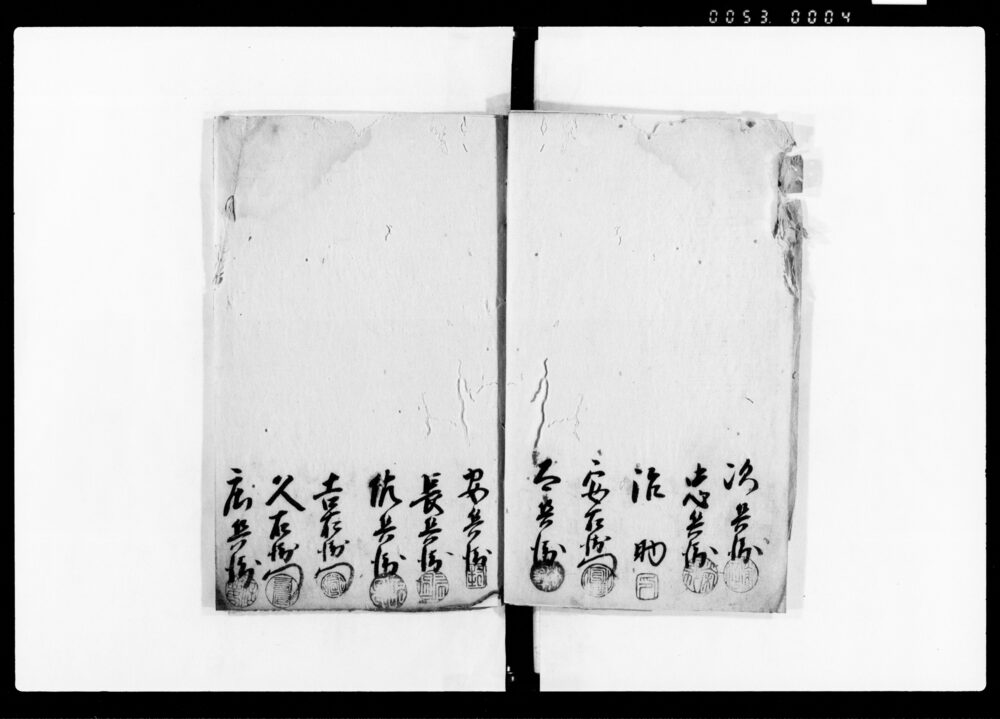 0053 0004
次兵衛
忠兵衛
治助
安右衛門
兵衛
安兵衛
長兵衛
佐兵衛
吉右衛門
久右衛門
庄兵衛